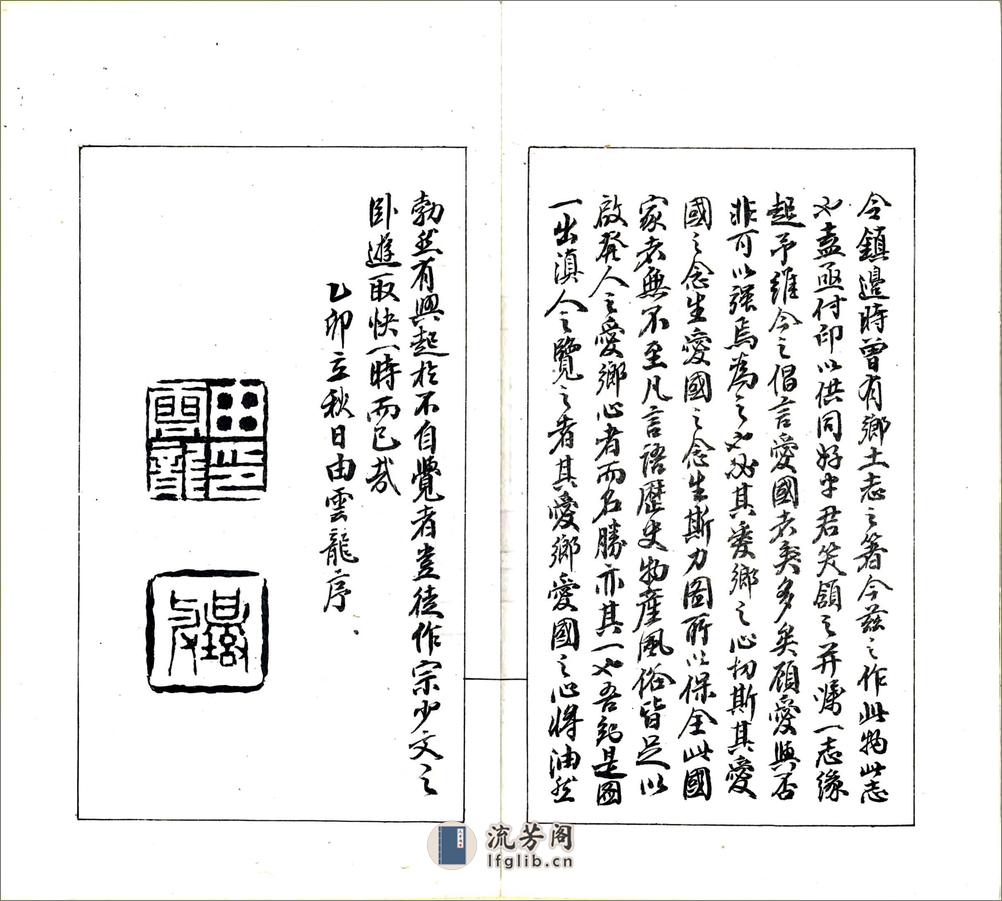 令鎮邊時曾有鄉土志之著今茲之作此物此志
也盍亟付印以供同好乎君笑頷之并囑一志緣
起予維今之倡言愛國者多矣顧愛與否
非可以強焉為之也必其愛鄉之心切斯其愛
國之念生愛國之念生斯力圖所以保全此國
家者無不至凡言語歷史物產風俗皆足以
啟發人之愛鄉心者而名勝亦其一也吾知是圖
一出滇人之覽之者其愛鄉愛國之心將油然
勃然有興起於不自覺者豈徒作宗少文之
臥遊取快一時而已哉
乙卯立秋日由雲龍序
流芳阁
lfglib.cn